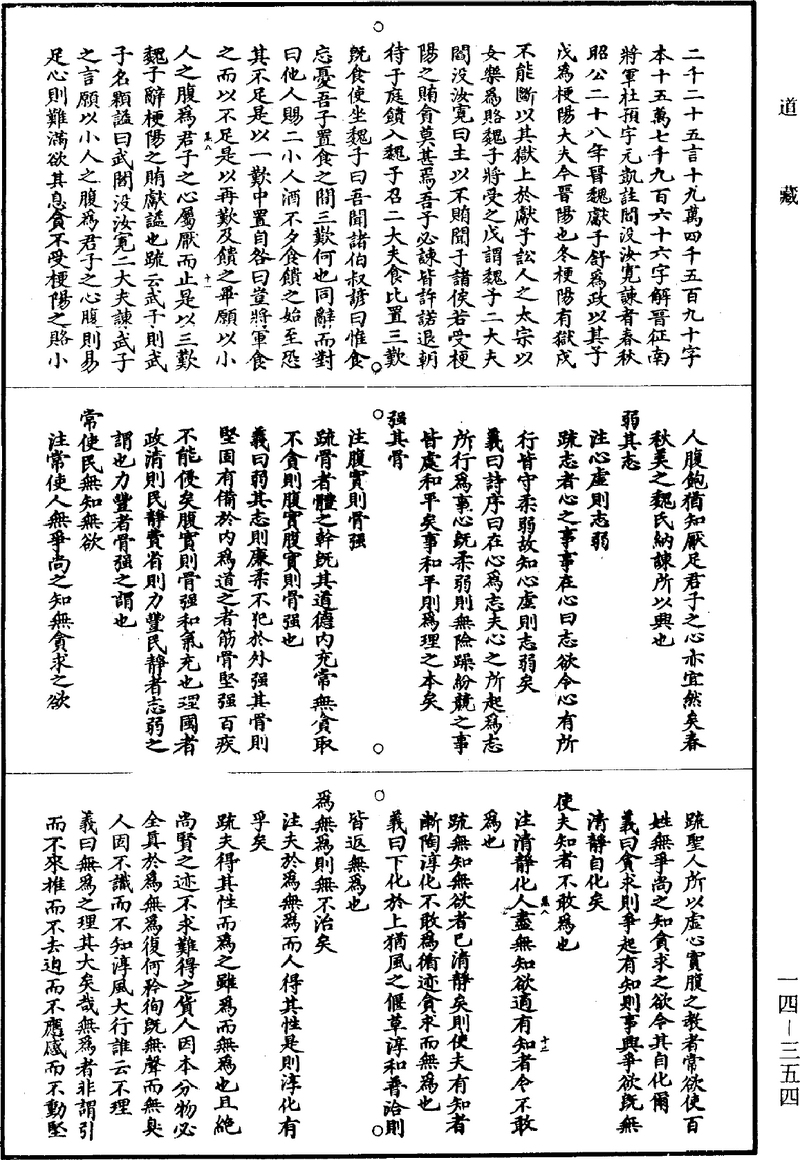 道藏
二千二十五言十九萬四千五百九十字
本十五萬七千九百六十六字解晉征南
將軍杜預字元凱註閻没汝寬諫者春秋
昭公二十八年晉魏獻子舒為政以其子
戊為梗陽大夫今晉陽也冬梗陽有獄戊
不能斷以其獄上於獻子訟人之太宗以
女樂為賂魏子將受之戊謂魏子二大夫
閻没汝寬曰主以不賄聞于諸侯若受梗
陽之賄貪莫甚焉吾子必諫皆許諾退朝
待于庭饋入魏子召二大夫食比置三歎
既食使坐魏子曰吾聞諸伯叔諺曰惟食
忘憂吾子置食之間三歎何也同辭而對
曰他人賜二小人酒不夕食饋之始至恐
其不足是以一歎中置自咎曰豈將軍食
之而以不足是以再歎及饋之畢願以小
人之腹為君子之心屬厭而止是以三歎
魏子辭梗陽之賄獻謚也疏云武子則武
子名顆謚曰武閻没汝寬二大夫諫武子
之言願以小人之腹為君子之心腹則易
足心則難滿欲其息貪不受梗陽之賂小
人腹飽猶知厭足君子之心亦宜然矣春
秋美之魏氏納諫所以興也
弱其志
注心虛則志弱
疏志者心之事事在心曰志欲令心有所
行皆守柔弱故知心虛則志弱矣
義曰詩序曰在心為志夫心之所起為志
所行為事心既柔弱則無險躁紛競之事
皆處和平矣事和平則為理之本矣
强其骨
注腹實則骨强
疏骨者體之幹既其道德内充常無貪取
不貪則腹實腹實則骨强也
義曰弱其志則廉柔不犯於外强其骨則
堅固有備於内為道之者筋骨堅强百疾
不能侵矣腹實則骨强和氣充也理國者
政清則民靜費省則力豐民靜者志弱之
謂也力豐者骨强之謂也
常使民無知無欲
注常使人無爭尚之知無貪求之欲
疏聖人所以虛心實腹之教者常欲使百
姓無爭尚之知貪求之欲令其自化爾
義曰貪求則爭起有知則事興爭欲既無
清靜自化矣
使夫知者不敢為也
注清靜化人盡無知欲適有知者令不敢
為也
疏無知無欲者已清靜矣則使夫有知者
漸陶淳化不敢為循迹貪求而無為也
義曰下化於上猶風之偃草淳和普洽則
皆返無為也
為無為則無不治矣
注夫於為無為而人得其性是則淳化有
孚矣
疏夫得其性而為之雖為而無為也且絶
尚賢之迹不求難得之貨人因本分物必
全真於為無為復何矜徇既無聲而無臭
人因不識而不知淳風大行誰云不理
義曰無為之理其大矣哉無為者非謂引
而不來推而不去迫而不應感而不動堅
一四－三五四